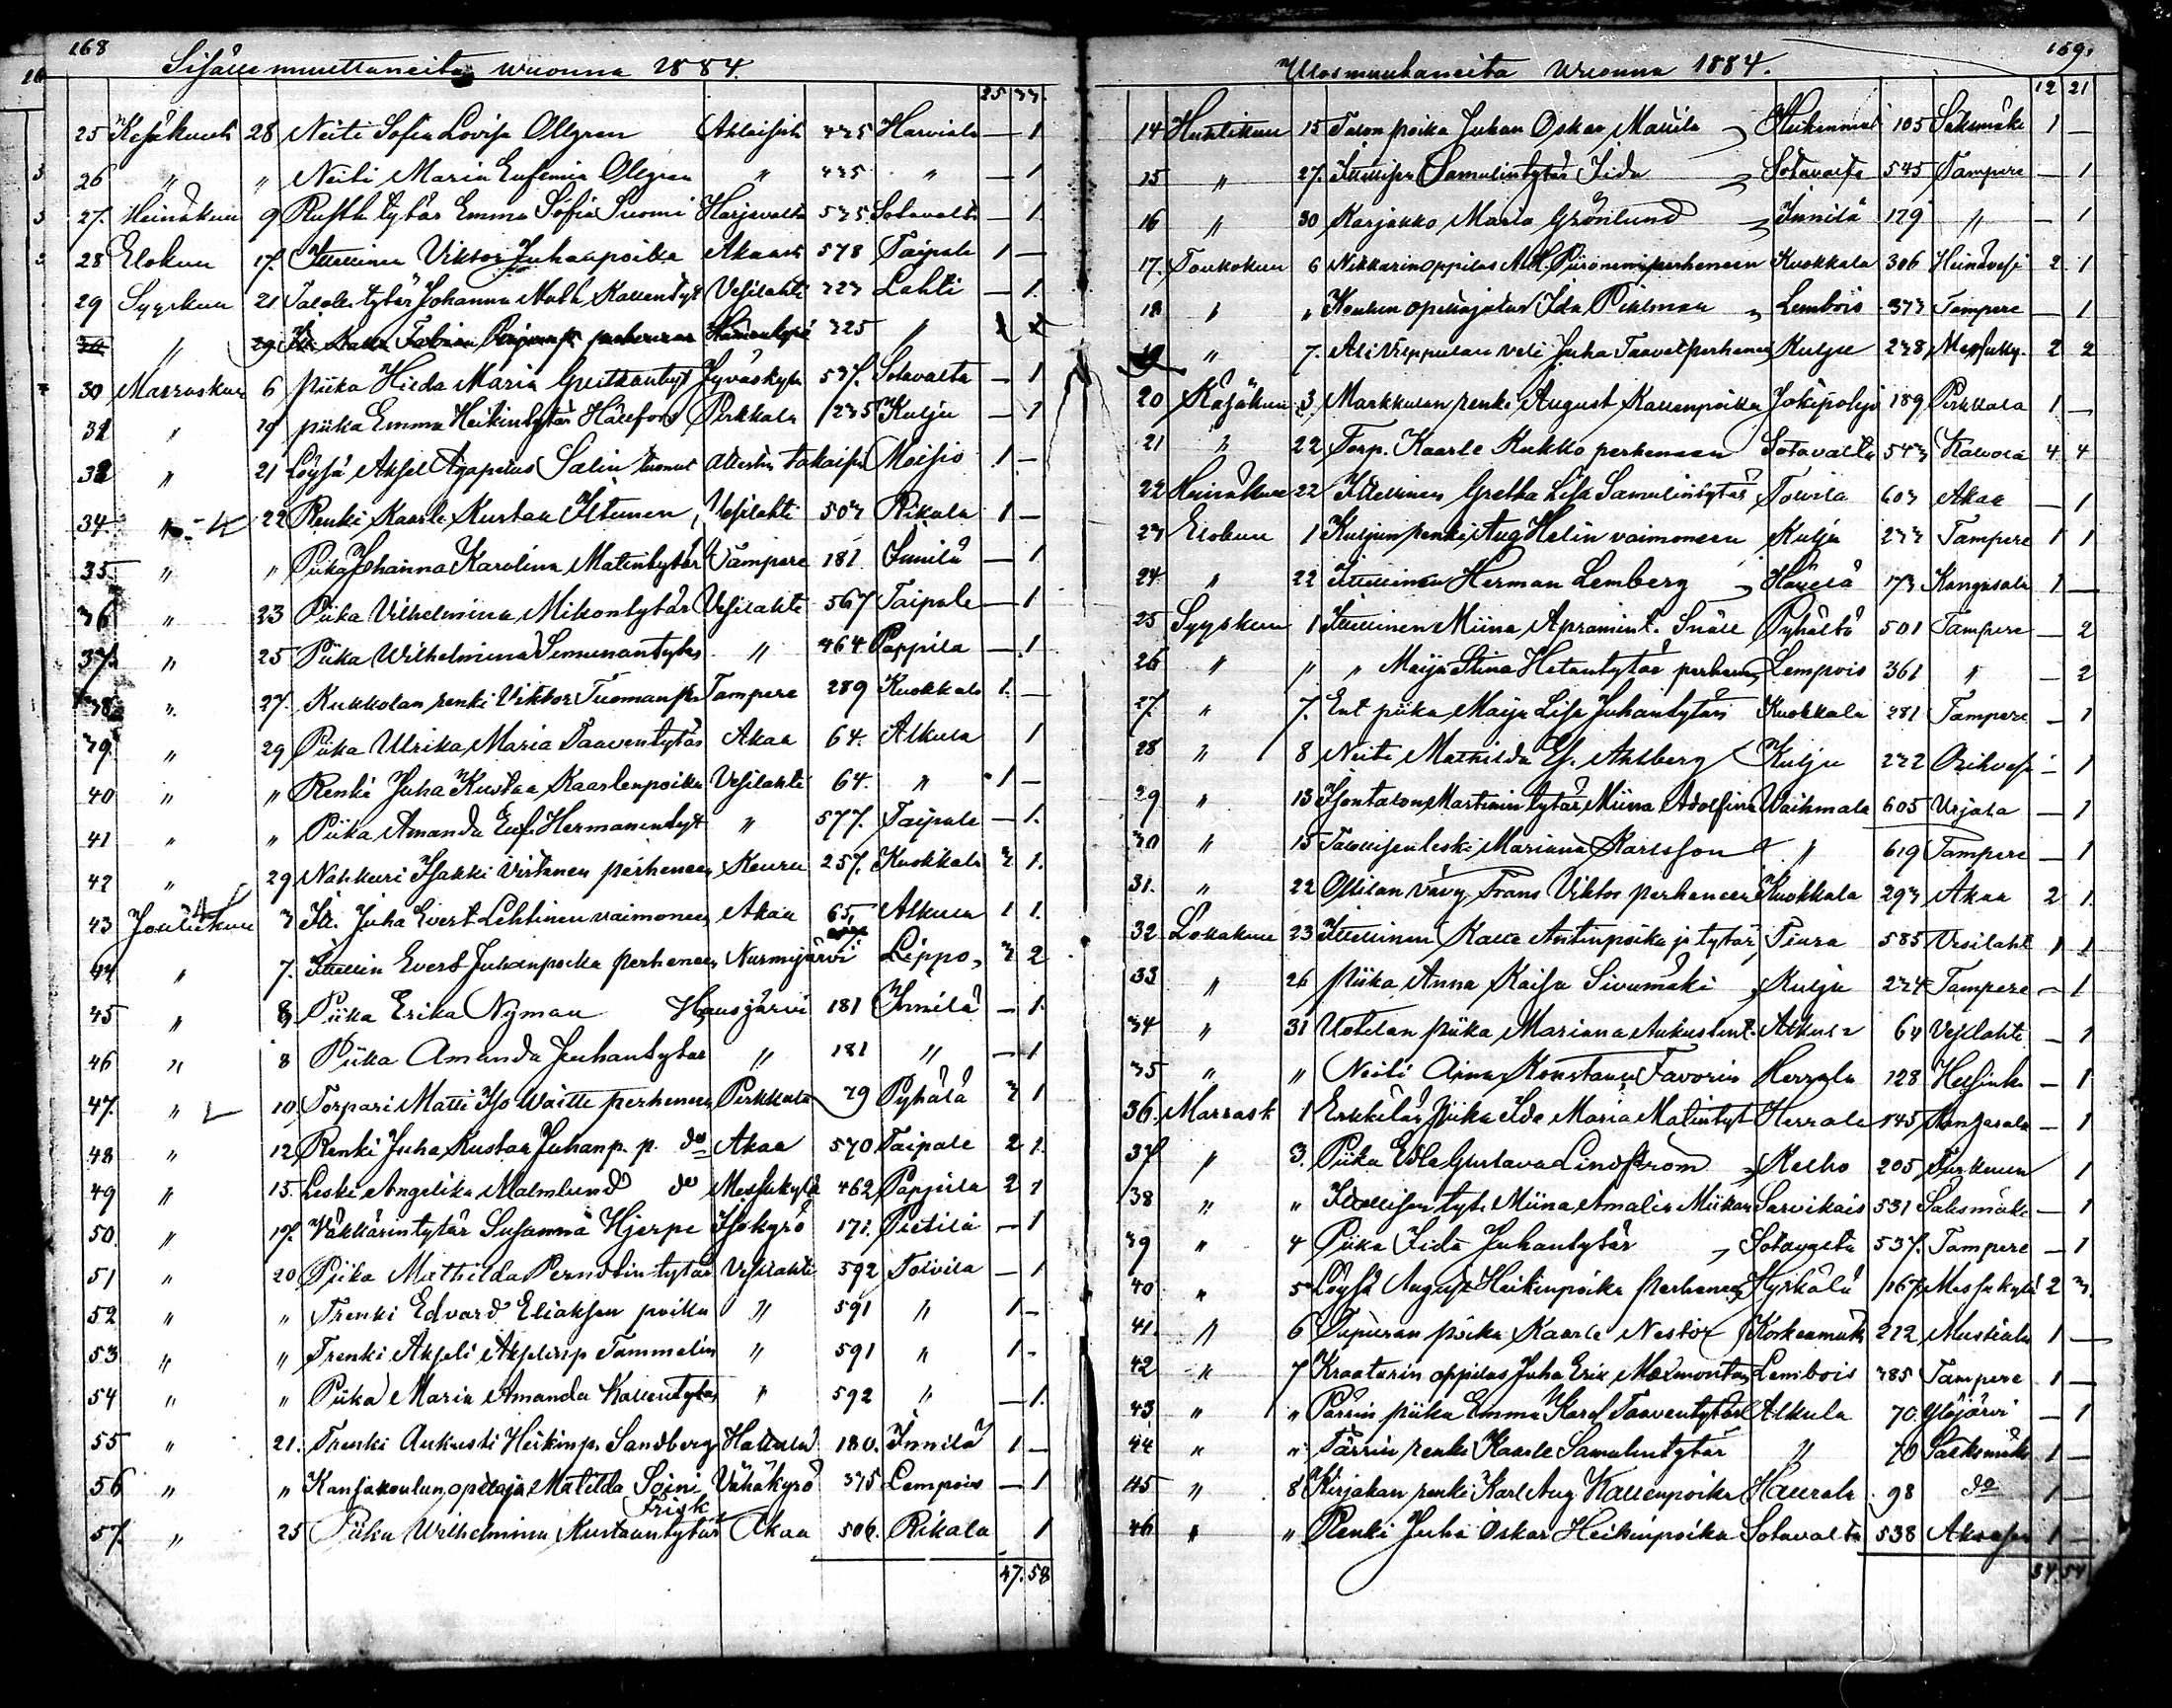 168
Sisälle muuttaneita wuonna 1884.
25 33.
25 Kesäkuuta 28 Neiti Sofia Lovisa Ollgren 435 Harviala — 1
26 " " Neiti Maria Eufemia Ollgren " 435 " — 1
27. Heinäkuu 9 Rusth. tytär Emma Sofia Suomi Harjavalta 535 Sotavalta — 1
28 Elokuu 17. Itsellinen Viktor Juhanpoika Akaasta 578 Taipale 1 —
29 Syyskuu 21 Talolls. tytär Johanna Math. Kallentyt Vesilahti 323 Lahti — 1
" 29 325 "
30 Marraskuu 6 piika Hilda Maria Jyväskylä 537. Sotavalta — 1
31 " 19 piika Emma Heikintytär Hälfors Pirkkala 235 Kulju — 1
32 " 21 Löysä Aksel Agapetus Salin takaisin Moisio 1 —
34. " 22 Renki Kaarle Kustaa Iltanen, Vesilahti 503 Rikala 1 —
35 " " Piika Johanna Karolina Matintytär Tampere 181 Innilä — 1
36 " 23 Piika Vilhelmiina Mikontytär Vesilahti 567 Taipale — 1
37. " 25 Piika Wilhelmina Simunantytär " 464 Pappila — 1
38 " 27. Kukkolan renki Viktor Tuomanp. Tampere 289 Kuokkala 1. —
39. " 29 Piika Ulrika Maria Taaventytär Akaa 64. Alkula 1
40 " " Renki Juha Kustaa Kaarlenpoika Vesilahti 64. " 1 —
41 " " Piika Amanda Euf. Hermanintyt " 577. Taipale — 1.
42 " 29 Nahkuri Isakki Virtanen perheneen Keuru 257. Kuokkala 3 1.
43 Joulukuu 3 Its. Juha Evert Lehtinen vaimoneen Akaa 65, Alkula 1 1.
44 " 7. Itsellin Evert Juhanpoika perheneen Nurmijärvi Lippo, 3 2
45 " 8 Piika Erika Nyman Hausjärvi 181 Innilä — 1.
46 " 8 Piika Amanda Juhantytär " 181 " — 1
47. " 10. Torpari Matti Iso Waitti perheneen Pirkkala 79 Pyhälä 3 1
48 " 12 Renki Juha Kustaa Juhanp. p. do Akaa 570 Taipale 2 1.
49 " 15. Leski Angelika Malmlund do Messukylä 462 Pappila 2 1
50. " 17. Väkkärintytär Susanna Hjerpe Isokyrö 171. Pietilä — 1
51 " 20 Piika Mathilda tytär Vesilahti 592 Toivila — 1
52 " " Trenki Edvard Eliaksen poika " 591 " 1 -
53 " " Trenki Akseli Akselinp Tammelin " 591 " 1 -
54 " " Piika Maria Amanda Kallentytär " 592 " — 1.
55 " 21. Trenki Aukusti Heikinp. Sandberg Hattula 180. Innilä 1 —
56 " " Kansakoulun opettaja Matilda Soini Vähäkyrö 375 Lempois — 1
Frisk
57. " 25 Piika Wilhelmina Kustaantytär Akaa 506. Rikala 1
47. 58
169.
Ulosmuuttaneita wuonna 1884.
12 21
14 Huhtikuu 15 Talon poika Juhan Oskar Mattila 105 Sääksmäki 1 —
15 " 27. Itsellisen Samulintytär Iida Sotavalta 545 Tampere — 1
16 " 30 Karjakko Maria Grönlund Innilä 179 " — 1
17. Toukokuu 6 Nikkarin oppilas A.H. Piironen perheneen Kuokkala 306 Heinävesi 2 1
18 " " Koulun opettajatar Ida Pihlman Lembois 373 Tampere — 1
19 " 7. Ali Vilppulan veli Juha Taavet perheneen Kulju 238 Messuky. 2 2
20 Kesäkuu 3 Markkulan renki August Kallenpoika Jokipohja 189 Pirkkala 1 —
21 " 22 Torp. Kaarle Kukko perheneen Sotavalta 543 Kalvola 4 4
22 Heinäkuu 22 Itsellinen Gretha Lisa Samulintytär Toivila 603 Akaa — 1
23 Elokuu 1 Kuljun renki Aug Helin vaimoneen Kulju 233 Tampere 1 1
24 " 22 Itsellinen Herman Lemberg 173 Kangasala 1 —
25 Syyskuu 1 Itsellinen Miina Apramint. Snäll Pyhältö 501 Tampere — 2
26 " " " Maija Stina perheneen Lempois 361 " — 2
27. " 7. Ent piika Maija Lisa Juhantytär Kuokkala 281 Tampere — 1
28 " 8 Neiti Mathilda Ahlberg Kulju 232 Orihvesi — 1
29 " 13 Isontalon Martinin tytär Miina Adolfina Waihmala 605 Urjala — 1
30 " 15 Talollisen leski Mariana Karlsson " 619 Tampere — 1
31. " 22 Ollilan vävy Frans Viktor perheneen Kuokkala 293 Akaa 2 1.
32 Lokakuu 23 Itsellinen Kalle Antinpoika ja tytär, Tiura 585 Vesilaht 1 1
33 " 26 piika Anna Kaisa Sivumäki Kulju 234 Tampere — 1
34 " 31 Uotilan piika Mariana Aukustint. Alkula 64 Vesilahti — 1
35 " " Neiti Aina Konstance Favorin Herrala 128 Helsinki — 1
36. Marrask 1 Erkkilän piika Ida Maria Matintyt Herrala 145 Kangasala — 1
37 " 3. Piika Edla Gustava Lindström Kelho 205 Turkuun 1
38 " " Itsellisen tyt. Miina Amalia Miikan Sarvikais 531 Säksmäki — 1
39 " 4 Piika Iida Juhantytär Sotavalta 537. Tampere — 1
40 " 5 Löysä August Heikinpoika perheneen Hyrkälä 167. Messukylä 2 3.
41. " 6 poika Kaarle Nestor Korkeamäki 212 Mustiala 1 —
42 " 7 Kraatarin oppilas Juha Erik Lembois 385 Tampere 1 —
43 " " Pärrin piika Emma Karol Taaventytär Alkula 70. Ylöjärvi — 1
44 " " Pärrin renki Kaarle Samulintytär " 70 Sääksmäki 1 —
45 " 8 Kirjakan renki Karl Aug Kallenpoika Haurala 98 do 1 —
46 " " Renki Juha Oskar Heikinpoika Sotavalta 538 1 —
54. 54